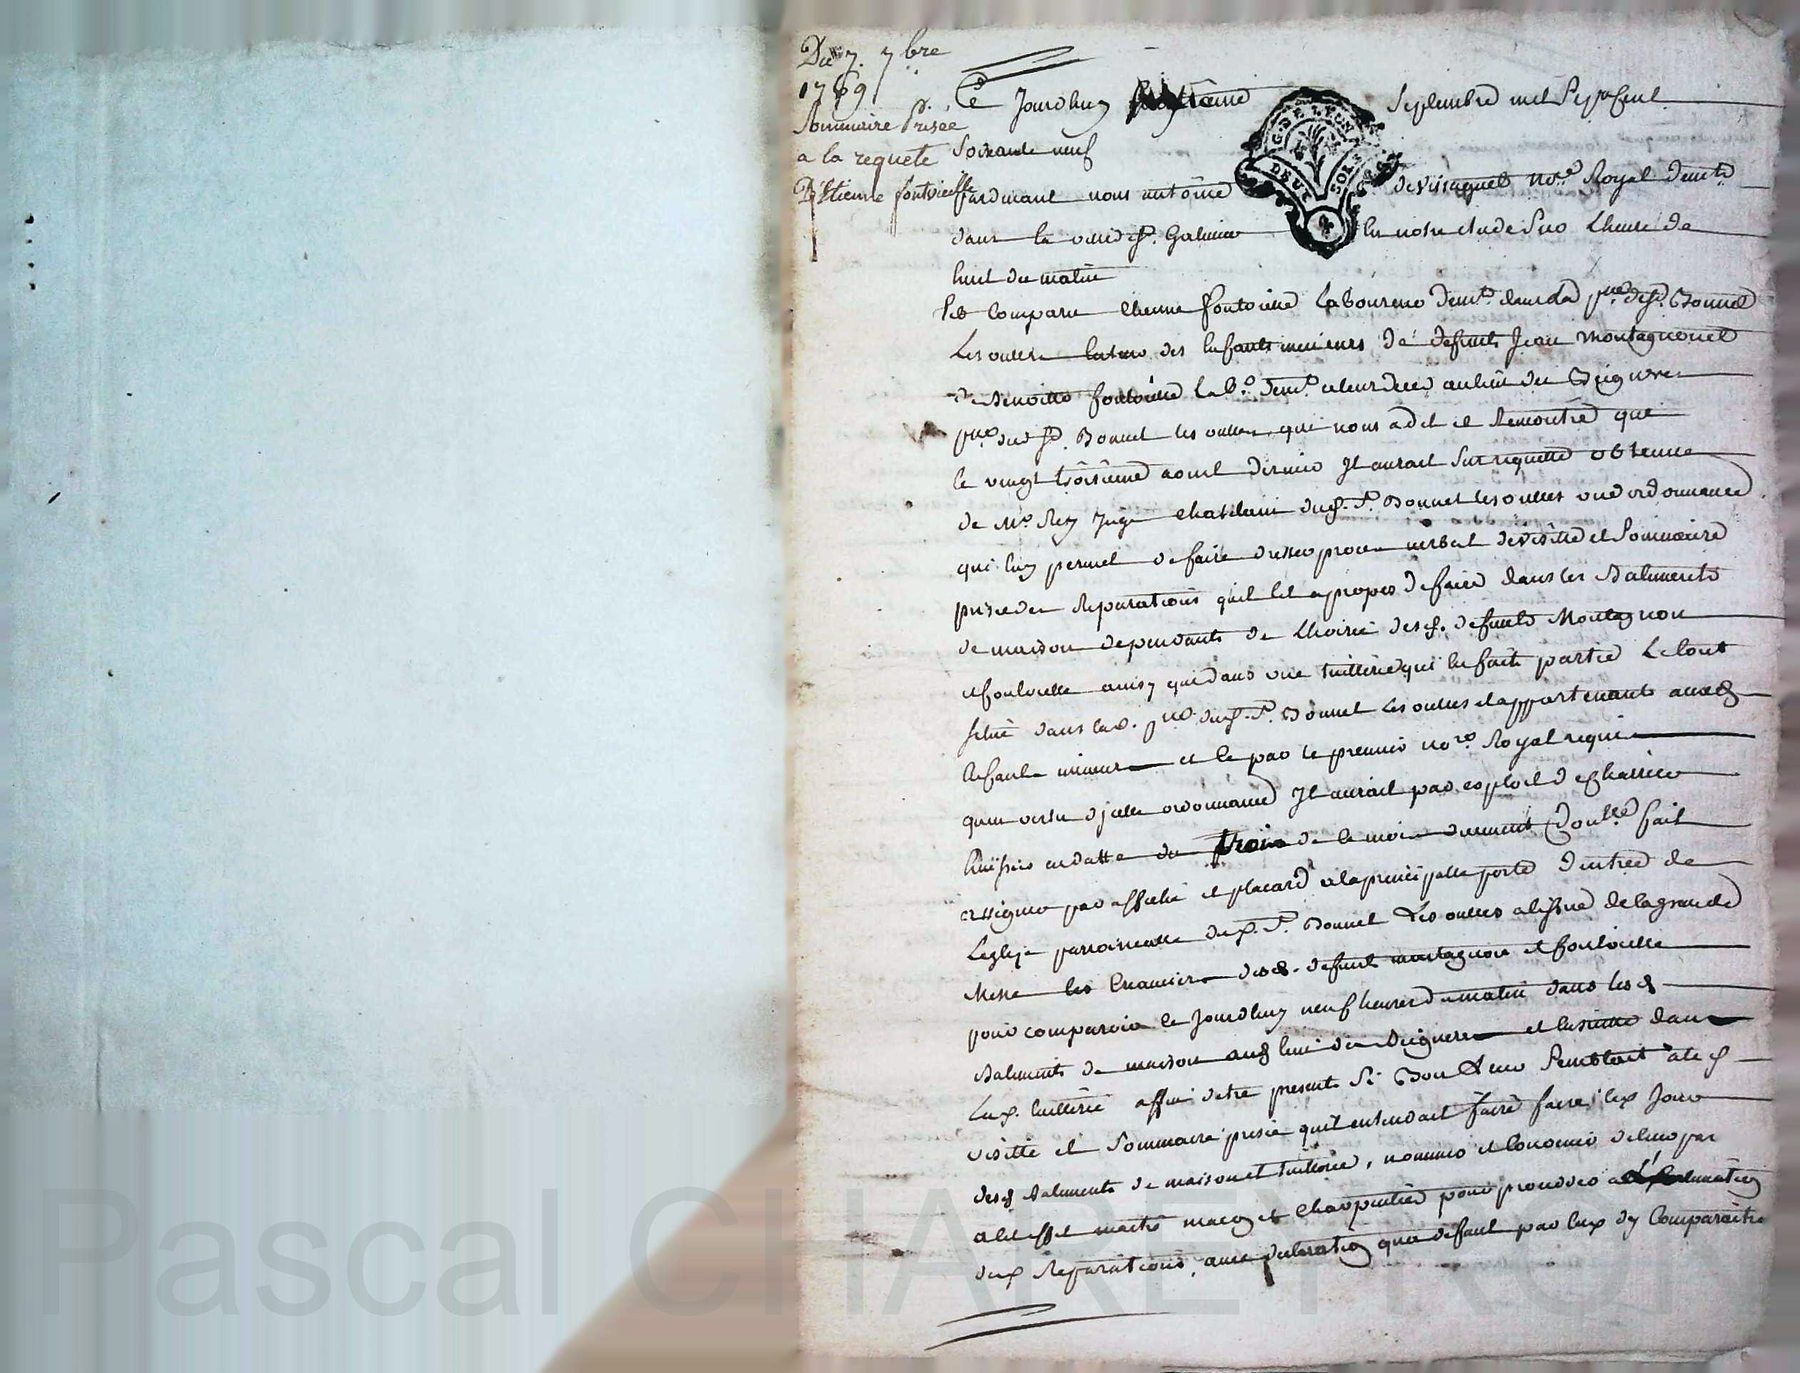 Du 7. 7bre
1769
Sommaire Prisée
a la requete
D'Etienne fontvieille
Ce Jourdhuy septieme Septembre mil Sept Cent
Soixante neuf
Pardevant nous antoine devissaguet no.re Royal demt.
dans la ville de St. Galmier En notre etude Sur Lheure de
huit du matin
Est Comparu Etienne fontvieille Laboureur demt. dans la p.sse de St. Bonnet
Les oulles tuteur des Enfants mineurs de defunts Jean montagnon et
de Benoitte fontvieille
p.sse dud St. Bonnet les oulles, qui nous a dit et Remontré que
le vingt troisieme aoust dernier Il aurait Sur requette obtenue
de Mr. Rey Juge Chatelain dud. St. Bonnet les oulles une ordonnance
qui luy permet de faire dresser proces verbal de visitte et Sommaire
prisée des Reparations quil est apropos de faire dans les Batiments
de maison dependants de Lhoirie desd. defunts Montagnon
et fontvieille ainsy que dans une tuillerie qui En fait partie Le tout
situé dans lad. p.sse dud. St. Bonnet Les oulles et appartenants auxd
Enfants mineurs et ce par le premier no.re Royal requis
quen vertu dicelle ordonnance Il aurait par exploit de
huissier en datte du trois de ce mois dument Controllé fait
assigner par affiche et placard a la principalle porte dentrée de
Leglize parroissialle dud. St. Bonnet Les oulles a lissue de la grande
Messe les Creanciers desd. defunts montagnon et fontvieille
pour comparoir ce Jourdhuy neuf heures du matin dans lesd
Batiments de maison aud lieu de et Ensuitte dans
Lad. tuillerie affin detre presents Si Bon Leur Semblait a lad
visitte et Sommaire prisée quil entendait faire faire led Jour
desd Batiments de maison et tuillerie, nommer et Convenir de leur par
a cet effet maitre maçon et Charpentier pour proceder a L'Estimation
desd Reparations, avec declaration qua defaut par Eux dy Comparaitre
G. DE LYON
DEUX SOLS
Pascal CHAREYRON